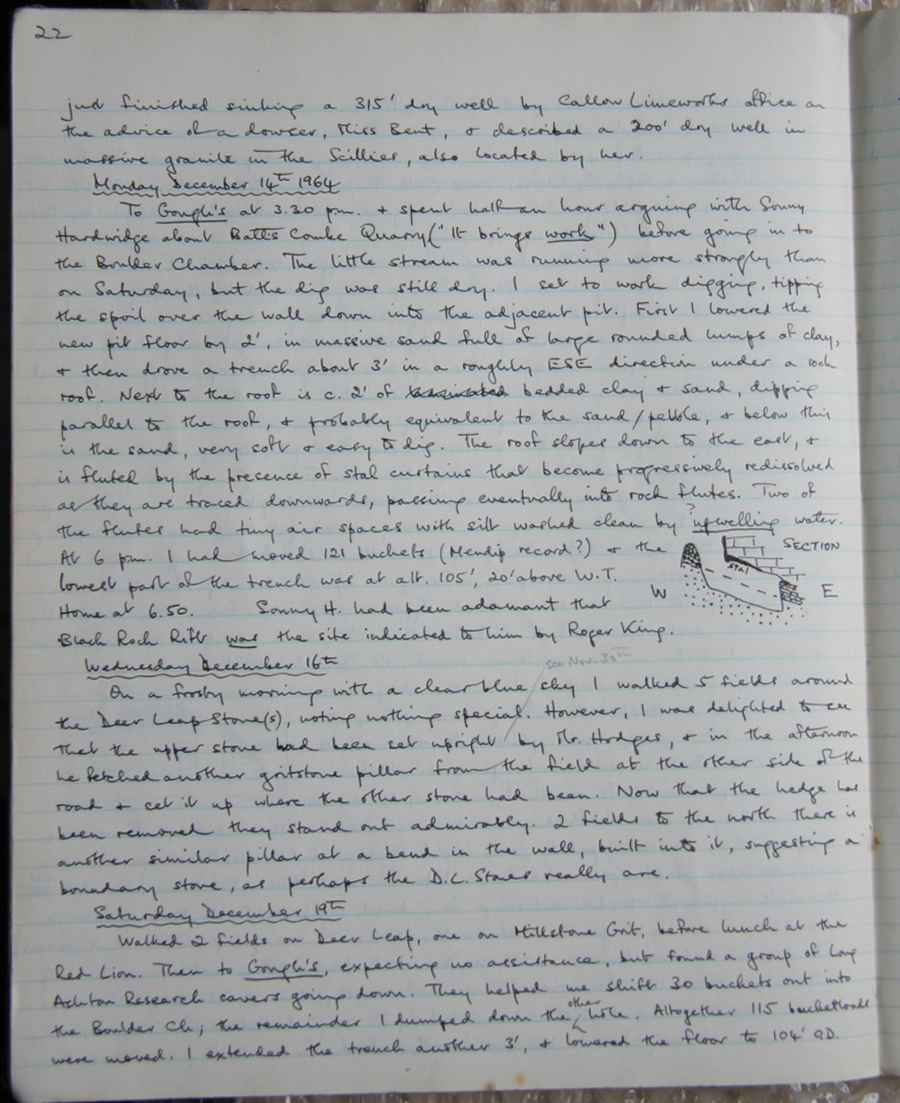 22
just finished sinking a 315' dry well by Callow Limeworks office on
the advice of a dowser, Miss Bent, & described a 200' dry well in
massive granite in the Scillies, also located by her.
Monday December 14th 1964
To Gough's at 3.30 pm. & spent half an hour arguing with Sonny
Hardwidge about Batts Combe Quarry ("It brings work") before going in to
the Boulder Chamber. The little stream was running more strongly than
on Saturday, but the dig was still dry. I set to work digging, tipping
the spoil over the wall down into the adjacent pit. First I lowered the
new pit floor by 2', in massive sand full of large rounded lumps of clay,
& then drove a trench about 3' in a roughly ESE direction under a rock
roof. Next to the roof is c. 2' of laminated bedded clay & sand, dipping
parallel to the roof, & probably equivalent to the sand/pebble, & below this
is the sand, very soft & easy to dig. The roof slopes down to the east, &
is fluted by the presence of stal curtains that become progressively redissolved
as they are traced downwards, passing eventually into rock flutes. Two of
the flutes had tiny air spaces with silt washed clean by ?upwelling water.
At 6 pm. I had moved 121 buckets (Mendip record?) & the
lowest part of the trench was at alt. 105', 20' above W.T.
Home at 6.50. Sonny H. had been adamant that
Black Rock Rift was the site indicated to him by Roger King.
SECTION
STAL
W E
Wednesday December 16th
see Nov. 30th
On a frosty morning with a clear blue sky I walked 5 fields around
the Deer Leap Stone(s), noting nothing special. However, I was delighted to see
that the upper stone had been set upright by Mr. Hodges, & in the afternoon
he fetched another gritstone pillar from the field at the other side of the
road & set it up where the other stone had been. Now that the hedge has
been removed they stand out admirably. 2 fields to the north there is
another similar pillar at a bend in the wall, built into it, suggesting a
boundary stone, as perhaps the D.L. Stones really are.
Saturday December 19th
Walked 2 fields on Deer Leap, one on Millstone Grit, before lunch at the
Red Lion. Then to Gough's, expecting no assistance, but found a group of Long
Ashton Research cavers going down. They helped me shift 30 buckets out into
the Boulder Ch; the remainder I dumped down the other hole. Altogether 115 bucketloads
were moved. I extended the trench another 3', & lowered the floor to 104' OD.